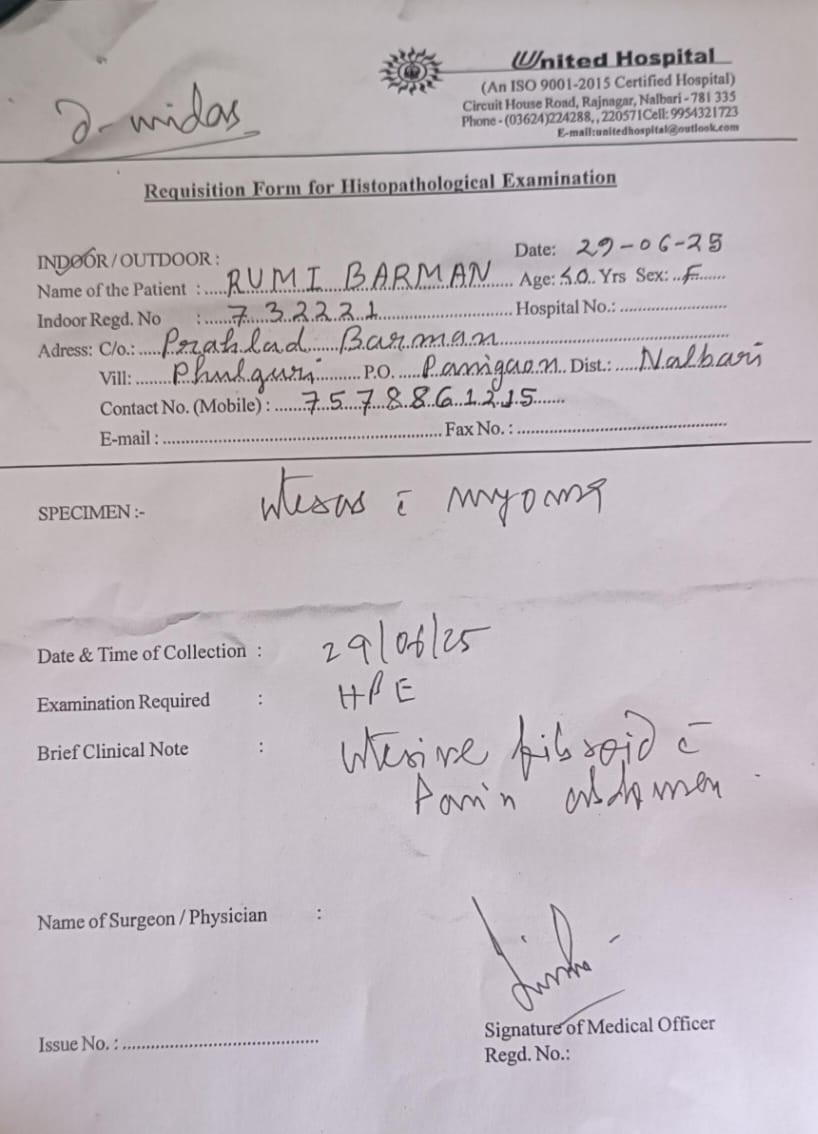 United Hospital
(An ISO 9001-2015 Certified Hospital)
Circuit House Road, Rajnagar, Nalbari - 781 335
Phone - (03624)224288,, 220571Cell: 9954321723
E-mail:unitedhospital@outlook.com
midas
Requisition Form for Histopathological Examination
INDOOR / OUTDOOR :
Date: 29-06-25
Name of the Patient : RUMI BARMAN Age: 40 Yrs Sex: F
Indoor Regd. No : 732221 Hospital No.:
Adress: C/o.: Prahlad Barman
Vill: Phulguri P.O. Panigaon Dist.: Nalbari
Contact No. (Mobile) : 7578861215
E-mail : Fax No. :
SPECIMEN :- uterus c̄ myoma
Date & Time of Collection : 29/06/25
Examination Required : HPE
Brief Clinical Note : Uterine fibroid c̄
Pain abdomen
Name of Surgeon / Physician :
Signature of Medical Officer
Issue No. :
Regd. No.: